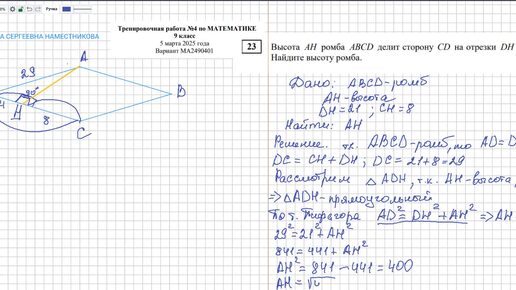 А СЕРГЕЕВНА НАМЕСТНИКОВА
Тренировочная работа №4 по МАТЕМАТИКЕ
9 класс
5 марта 2025 года
Вариант МА2490401
23
A
B
C
H
29
90°
8
Высота AH ромба ABCD делит сторону CD на отрезки DH
Найдите высоту ромба.
Дано: ABCD-ромб
AH-высота
DH=21; CH=8
Найти: AH
Решение. т.к. ABCD-ромб, то AD=D
DC = CH + DH; DC = 21+8=29
Рассмотрим △ADH, т.к. AH-высота,
=> △ADH-прямоугольный
По т. Пифагора AD²=DH²+AH² => AH
29²=21²+AH²
841=441+AH²
AH²=841-441=400
AH=√